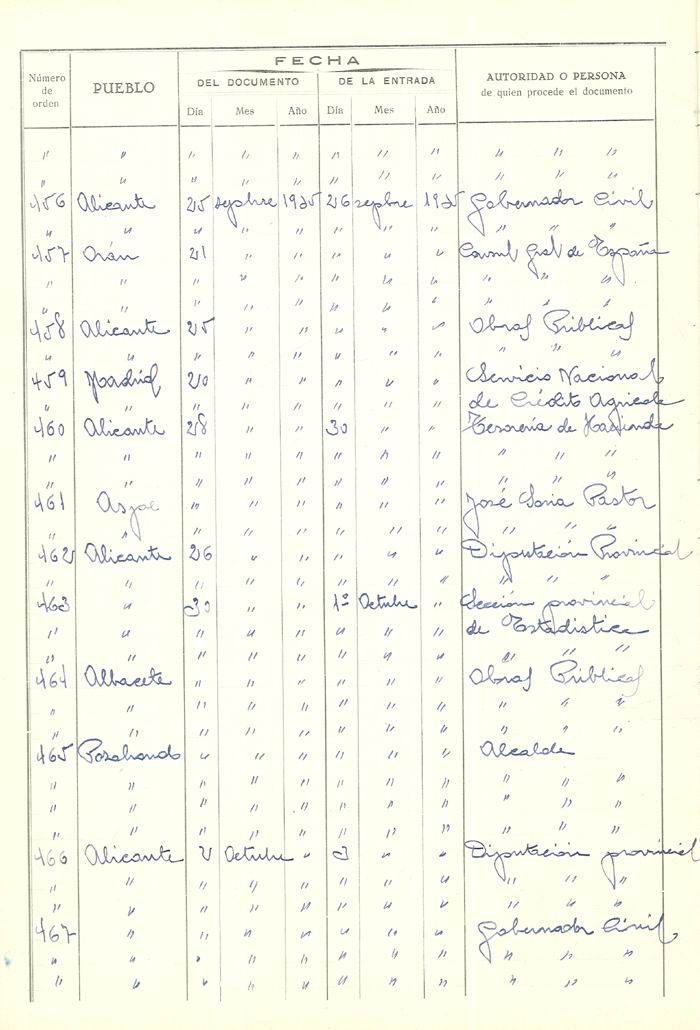 FECHA
Número de orden PUEBLO DEL DOCUMENTO DE LA ENTRADA AUTORIDAD O PERSONA de quien procede el documento
Día Mes Año Día Mes Año
" " " " " " " " " " "
" " " " " " " " " " "
456 Alicante 25 sepbre 1935 26 sepbre 1935 Gobernador Civil
" " " " " " " " " " "
457 Orán 21 " " " " " Consul Gral de España
" " " " " " " " " " "
" " " " " " " " " " "
458 Alicante 25 " " " " " Obras Públicas
" " " " " " " " " " "
459 Madrid 20 " " " " " Servicio Nacional
" " " " " " " " de Crédito Agricola
460 Alicante 28 " " 30 " " Tesorería de Hacienda
" " " " " " " " " " "
" " " " " " " " " " "
461 Aspe " " " " " " José Soria Pastor
" " " " " " " " " " "
462 Alicante 26 " " " " " Diputación Provincial
" " " " " " " " " " "
463 " 30 " " 1º Octubre " Sección provincial
" " " " " " " " de Estadística
" " " " " " " " " " "
464 Albacete " " " " " " Obras Públicas
" " " " " " " " " " "
" " " " " " " " " " "
465 " " " " " " Alcalde
" " " " " " " " " " "
" " " " " " " " " " "
" " " " " " " " " " "
466 Alicante 2 Octubre " 3 " " Diputación provincial
" " " " " " " " " " "
" " " " " " " " " " "
467 " " " " " " " Gobernador Civil
" " " " " " " " " " "
" " " " " " " " " " "